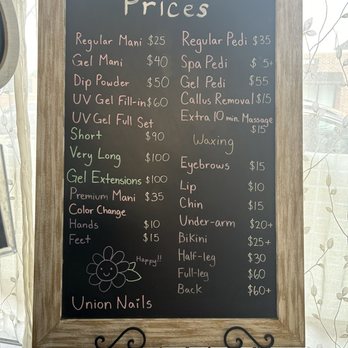 Prices
Regular Mani $25
Gel Mani $40
Dip Powder $50
UV Gel Fill-in $60
UV Gel Full Set
Short $90
Very Long $100
Gel Extensions $100
Premium Mani $35
Color Change
Hands $10
Feet $15
Happy!!
Union Nails
Regular Pedi $35
Spa Pedi $ 5+
Gel Pedi $55
Callus Removal $15
Extra 10 min Massage
$15
Waxing
Eyebrows $15
Lip $10
Chin $15
Under-arm $20+
Bikini $25+
Half-leg $30
Full-leg $60
Back $60+